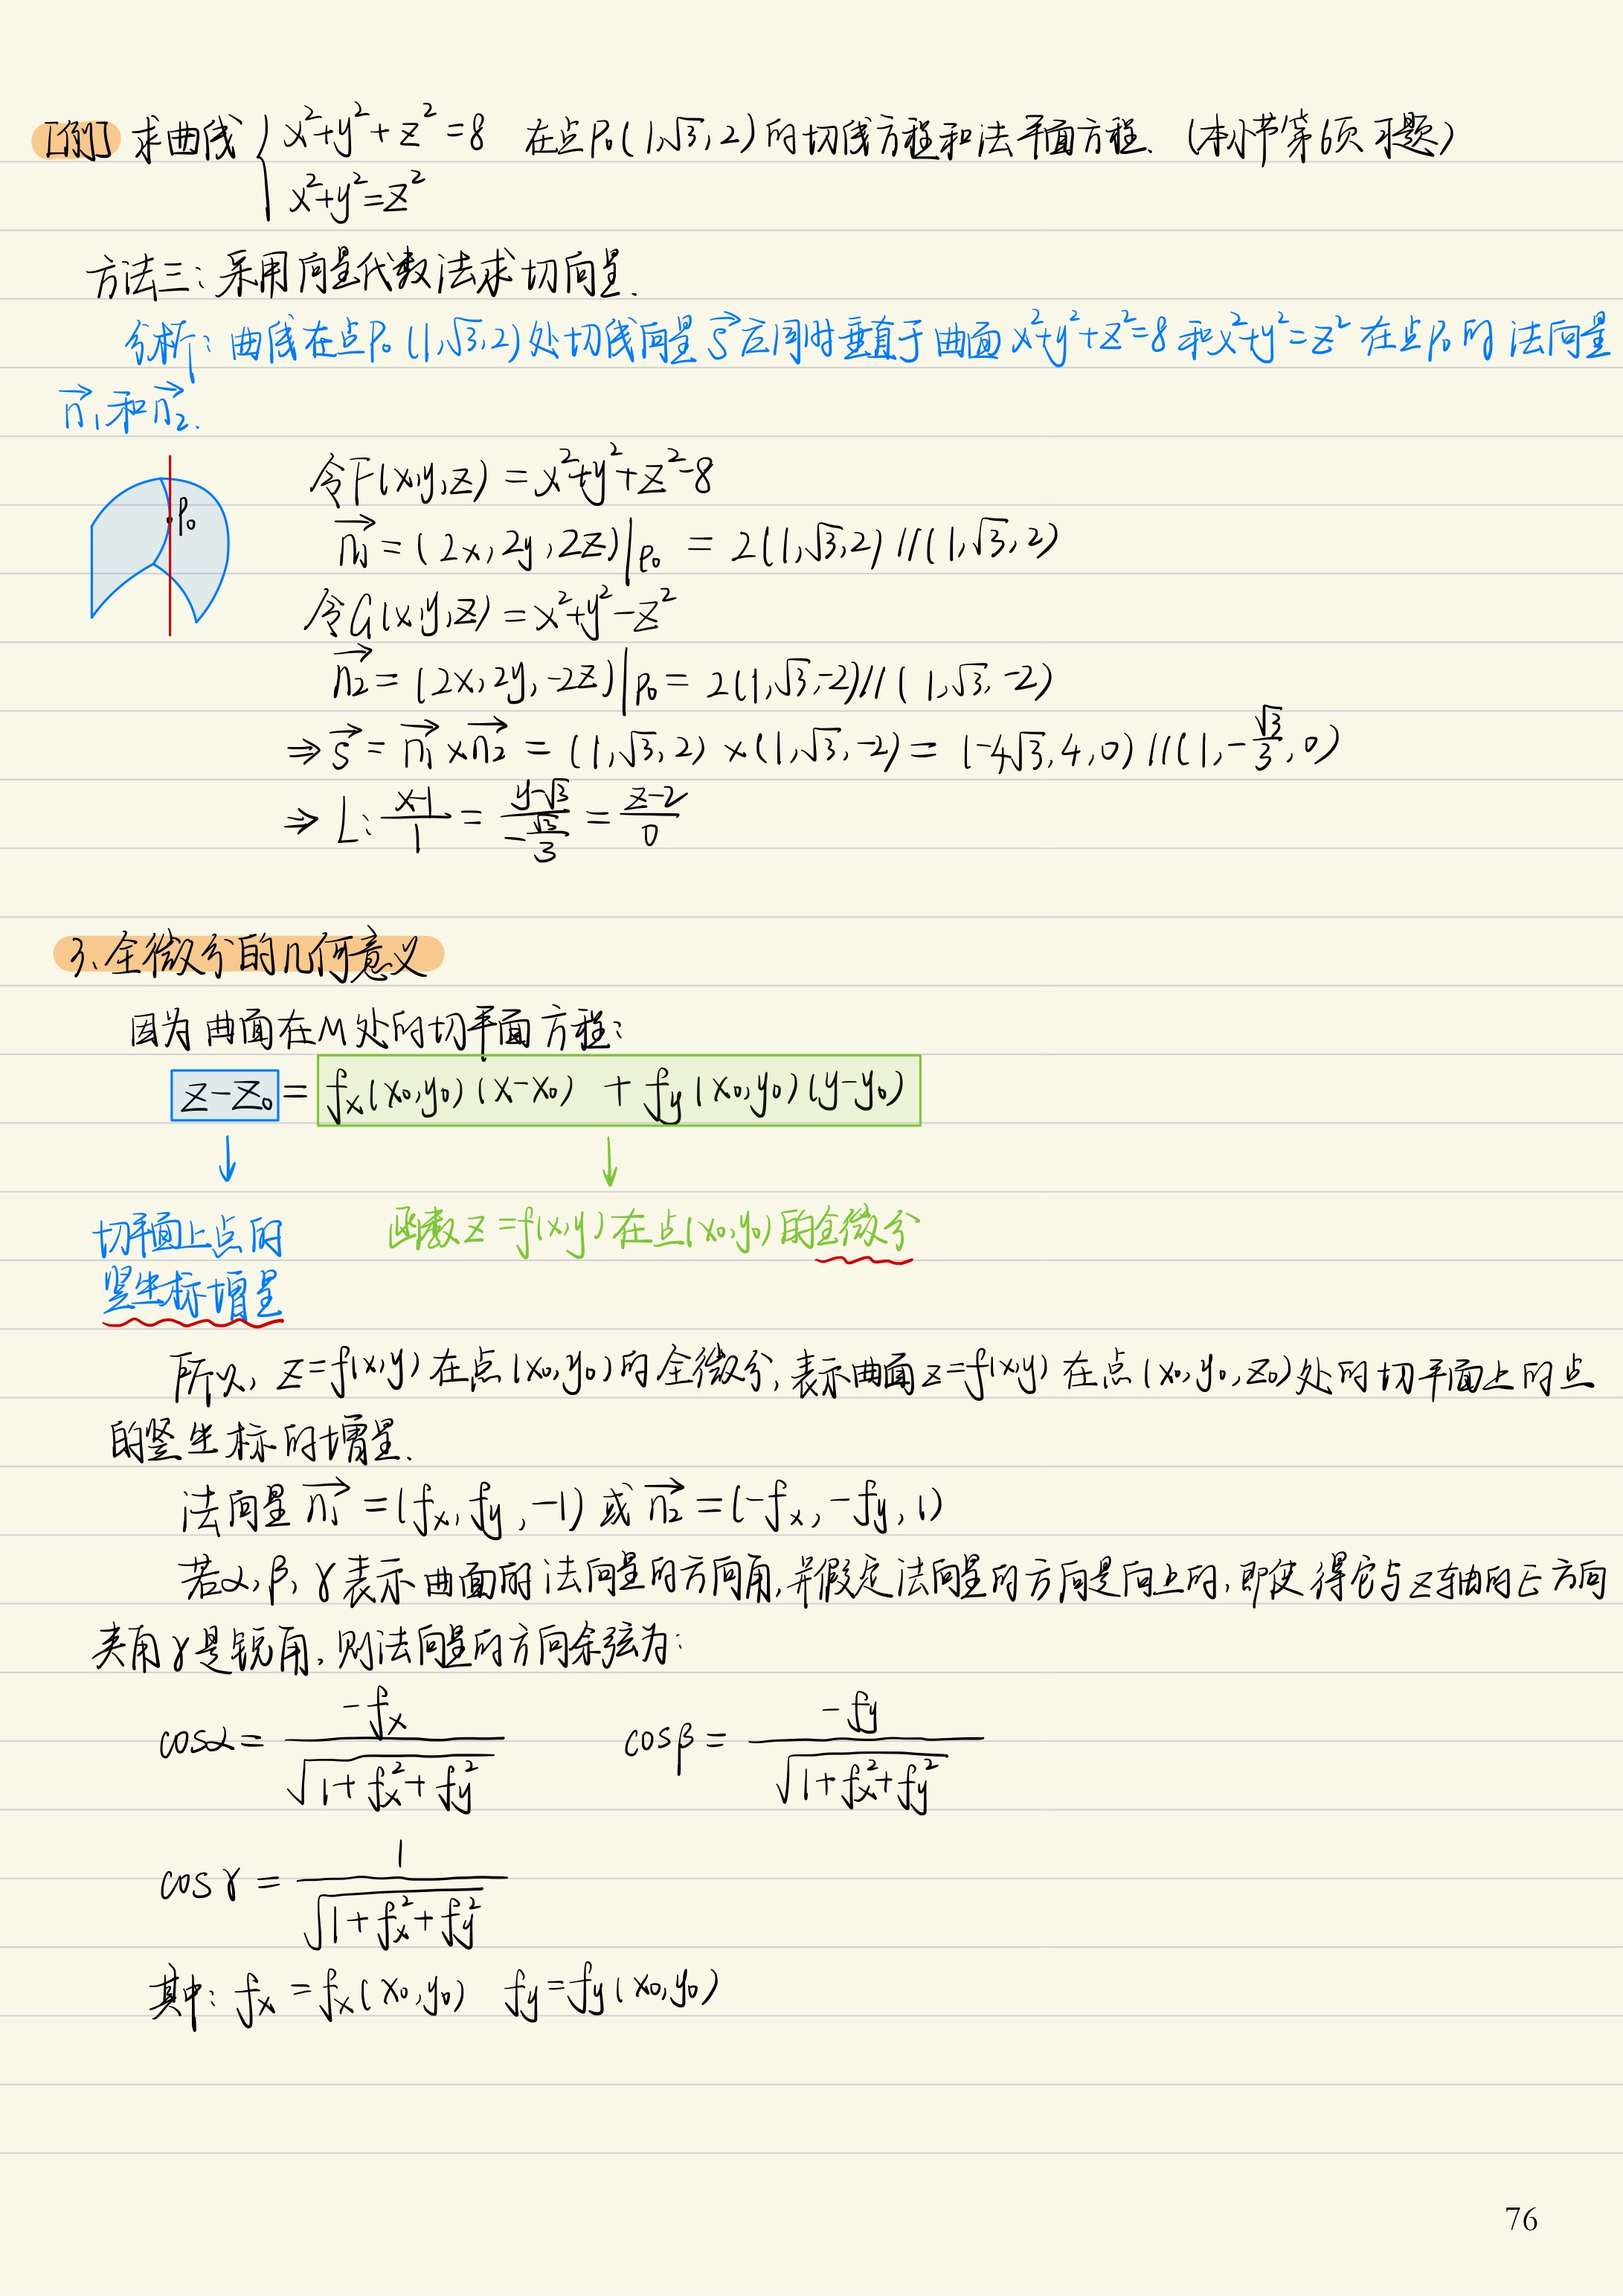 [例] 求曲线 { x²+y²+z²=8 在点P₀(1,√3,2)的切线方程和法平面方程. (本小节第6页习题)
x²+y²=z²
方法三:采用向量代数法求切向量.
分析:曲线在点P₀(1,√3,2)处切线向量s⃗应同时垂直于曲面x²+y²+z²=8和x²+y²=z²在点P₀的法向量
n⃗₁和n⃗₂.
P₀
令F(x,y,z)=x²+y²+z²-8
n⃗₁=(2x,2y,2z)|P₀ = 2(1,√3,2)//(1,√3,2)
令G(x,y,z)=x²+y²-z²
n⃗₂=(2x,2y,-2z)|P₀ = 2(1,√3,-2)//(1,√3,-2)
⇒s⃗=n⃗₁×n⃗₂=(1,√3,2)×(1,√3,-2)=(-4√3,4,0)//(1,-√3/3,0)
⇒L: (x-1)/1 = (y-√3)/(-√3/3) = (z-2)/0
3、全微分的几何意义
因为曲面在M处的切平面方程:
z-z₀=fx(x₀,y₀)(x-x₀)+fy(x₀,y₀)(y-y₀)
↓ ↓
切平面上点的 函数z=f(x,y)在点(x₀,y₀)的全微分
竖坐标增量
所以, z=f(x,y)在点(x₀,y₀)的全微分,表示曲面z=f(x,y)在点(x₀,y₀,z₀)处的切平面上的点
的竖坐标的增量.
法向量n⃗₁=(fx,fy,-1)或n⃗₂=(-fx,-fy,1)
若α,β,γ表示曲面的法向量的方向角,并假定法向量的方向是向上的,即使得它与z轴的正方向
夹角γ是锐角,则法向量的方向余弦为:
cosα=-fx/√(1+fx²+fy²) cosβ=-fy/√(1+fx²+fy²)
cosγ=1/√(1+fx²+fy²)
其中: fx=fx(x₀,y₀) fy=fy(x₀,y₀)
76